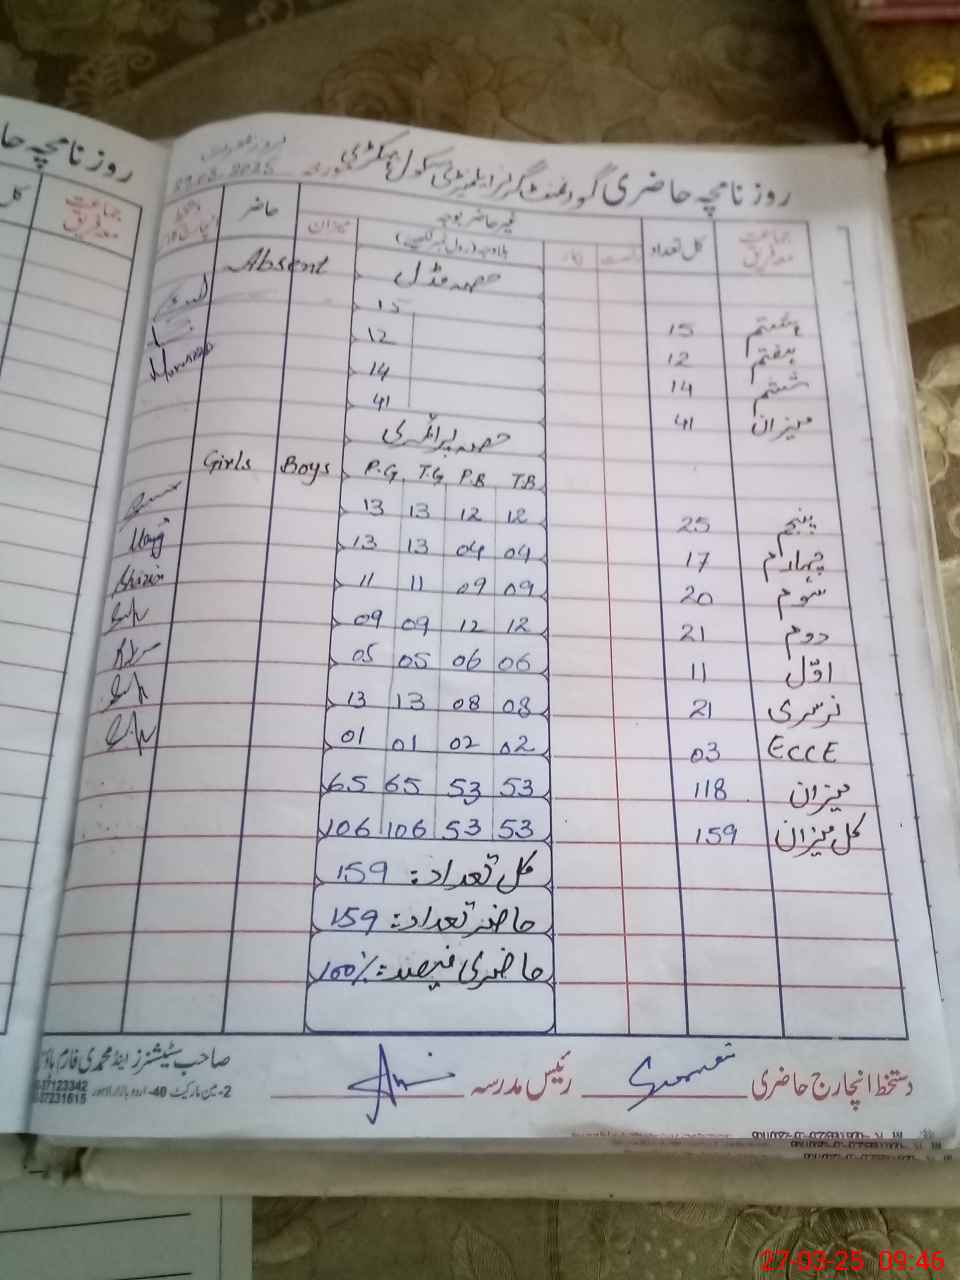 روزنامچہ حاضری گورنمنٹ گرلز ایلیمنٹری سکول
روزنامچہ حا
جماعت معہ فریق
کل تعداد
غیر حاضر بوجہ
میزان
حاضر
جماعت معہ فریق
کل
Absent
حصہ مڈل
ہشتم 15 15
ہفتم 12 12
ششم 14 14
میزان 41 41
حصہ پرائمری
T.B P.B T.G P.G Boys Girls
پنجم 25 12 12 13 13
چہارم 17 04 04 13 13
سوم 20 09 09 11 11
دوم 21 12 12 09 09
اول 11 06 06 05 05
نرسری 21 08 08 13 13
ECCE 03 02 02 01 01
میزان 118 53 53 65 65
کل میزان 159 53 53 106 106
کل تعداد: 159
حاضر تعداد: 159
حاضری فیصد: 100%
دستخط انچارج حاضری رئیس مدرسہ
صاحب سٹیشنرز اینڈ محمدی فارم ہاؤس
2- مین مارکیٹ 40- اردو بازار لاہور
27-03-25 09:46